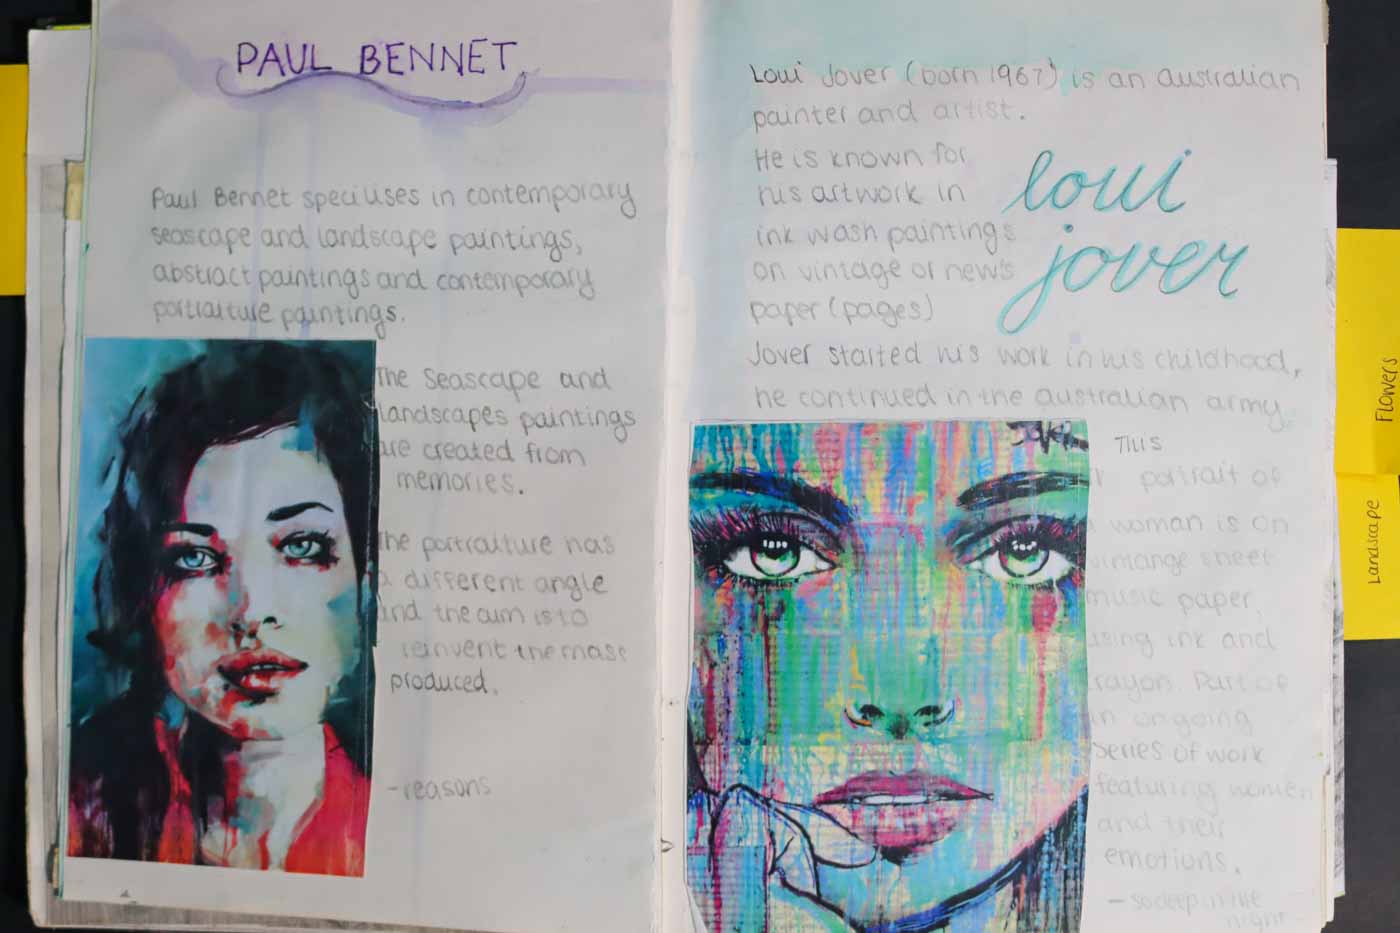 PAUL BENNET
Paul Bennet specilises in contemporary
seascape and landscape paintings,
abstract paintings and contemporary
portraiture paintings.
The Seascape and
landscapes paintings
are created from
memories.
The portraiture has
a different angle
and the aim is to
reinvent the mass
produced.
-reasons
Loui Jover (born 1967) is an australian
painter and artist.
He is known for
his artwork in
ink wash paintings
on vintage or news
paper (pages)
loui
jover
Jover started his work in his childhood,
he continued in the australian army.
This
portrait of
woman is on
vintange sheet
music paper,
using ink and
rayon. Part of
an ongoing
series of work
featuring women
and their
emotions.
- so deep in the
night
Flowers
Landscape